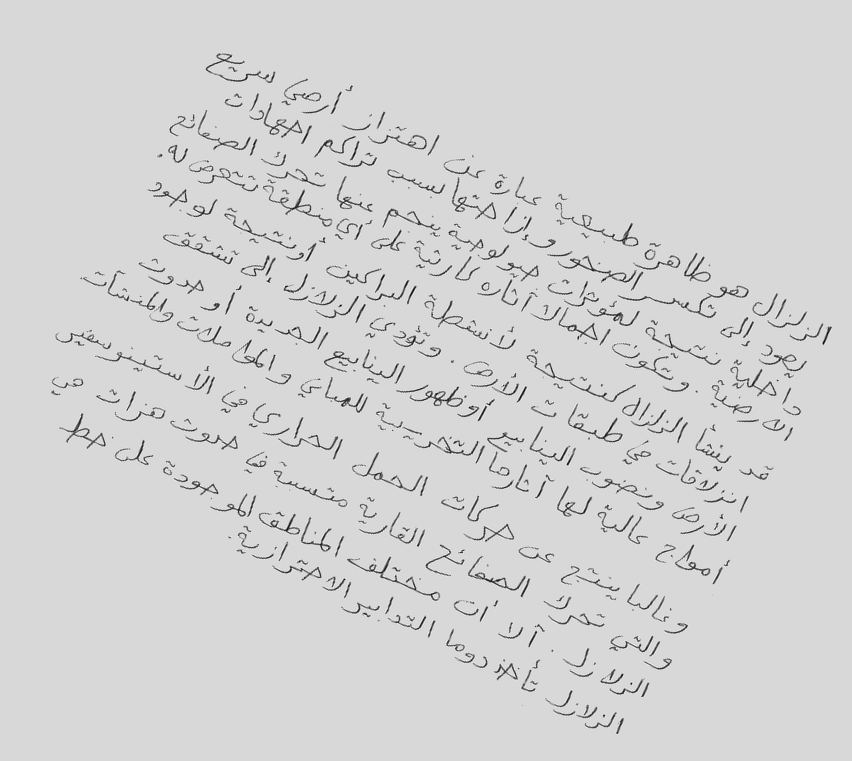 الزلزال هو ظاهرة طبيعية عبارة عن اهتزاز أرضي سريع
يعود إلى تكسر الصخور وإزاحتها بسبب تراكم اجهادات
داخلية نتيجة لمؤثرات جيولوجية ينجم عنها تحرك الصفائح
الارضية . وتكون اجمالا آثاره كارثية على أي منطقة تتعرض له.
قد ينشأ الزلزال كنتيجة لأنشطة البراكين أو نتيجة لوجود
انزلاقات في طبقات الأرض . وتؤدي الزلازل إلى تشقق
الأرض ونضوب الينابيع أو ظهور الينابيع الجديدة أو حدوث
أمواج عالية لها آثارها التخريبية للمباني والمواصلات والمنشآت
وغالبا ينتج عن حركات الحمل الحراري في الأستينوسفير
والتي تحرك الصفائح القارية متسببة في حدوث هزات هي
الزلازل . ألا أن مختلف المناطق الموجودة على خط
الزلازل تأخذ دوما التدابير الاحترازية.